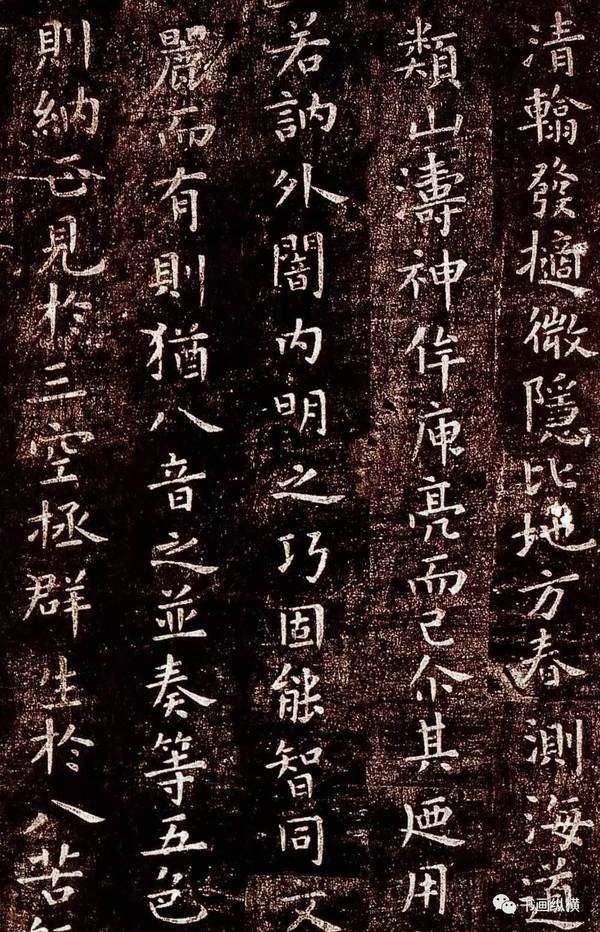 清翰發擿微隱比地方春測海道
類山濤神侔庾亮而已尒其迺用
若訥外闇内明之巧固能智同文
麗而有則猶八音之並奏等五色
則納正見於三空拯群生於八苦
书画纵横